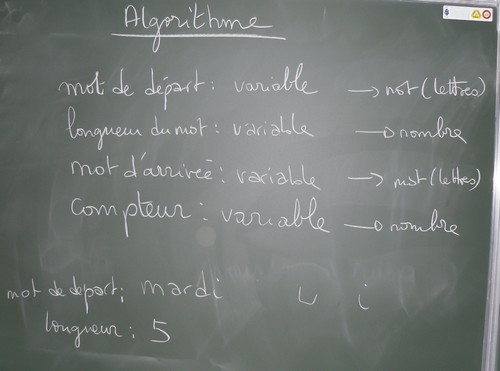 Algorithme
mot de départ : variable → mot (lettres)
longueur du mot : variable → nombre
mot d'arrivée : variable → mot (lettres)
compteur : variable → nombre
mot de depart : mardi i
longueur : 5